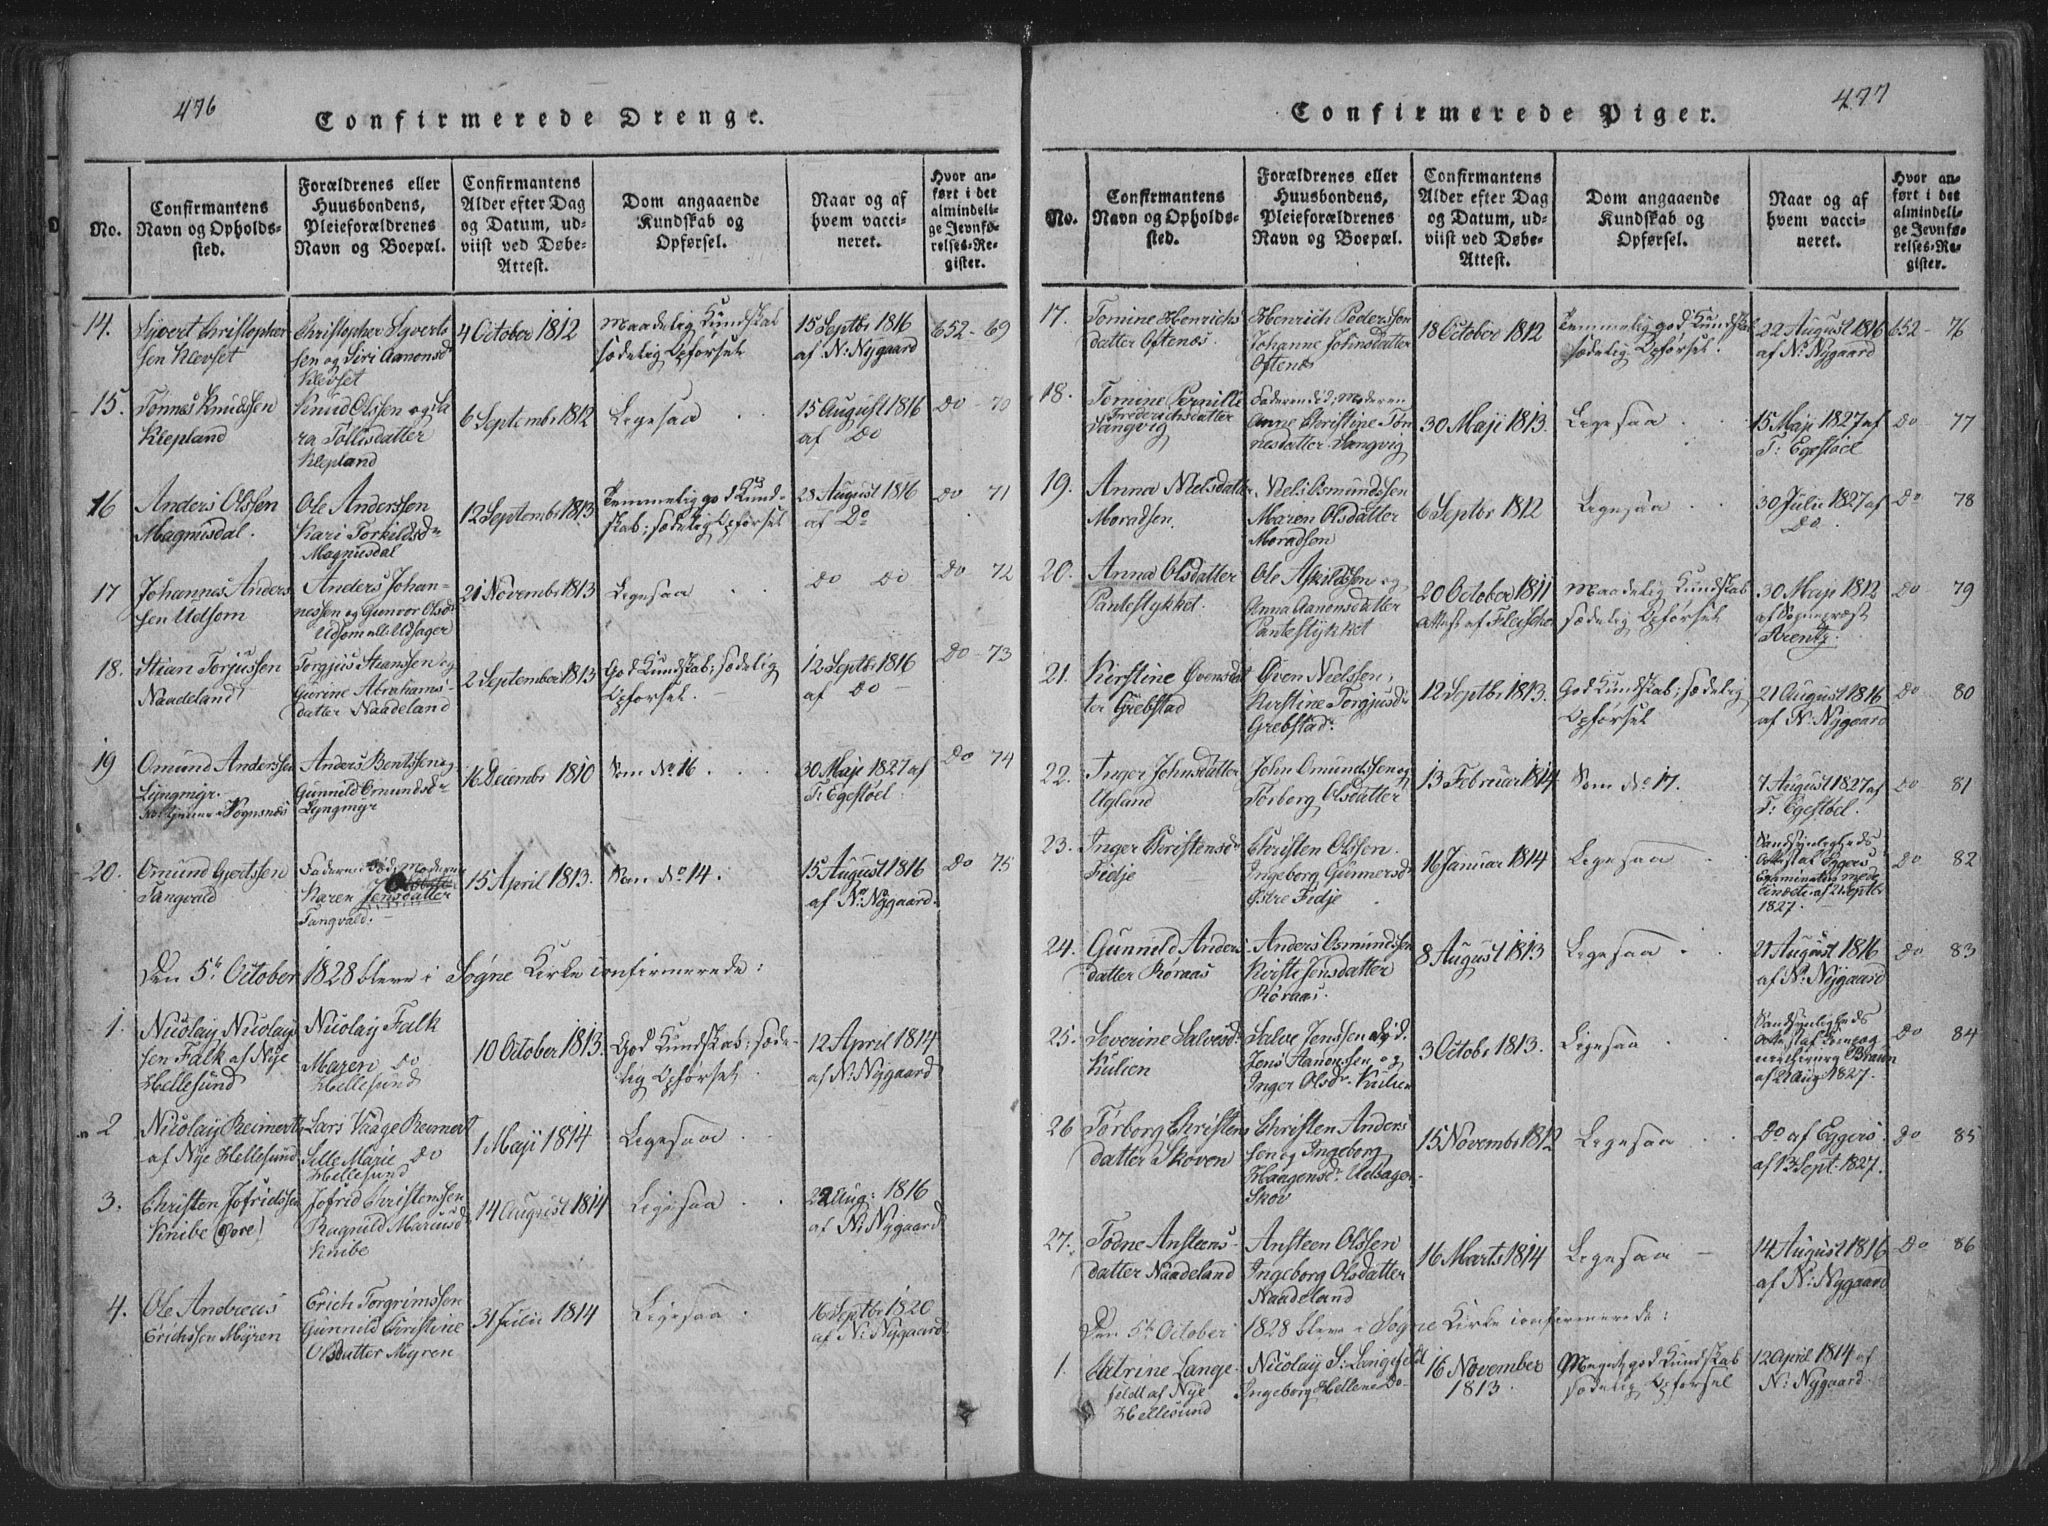 476
Confirmerede Drenge.
No.
Confirmantens
Navn og Opholds-
sted.
Forældrenes eller
Huusbondens,
Pleieforældrenes
Navn og Boepæl.
Confirmantens
Alder efter Dag
og Datum, ud-
viist ved Døbe-
Attest.
Dom angaaende
Kundskab og
Opførsel.
Naar og af
hvem vacci-
neret.
Hvor an-
ført i det
almindeli-
ge Jevnfø-
relses-Re-
gister.
14.
Sjvert Christopher
sen Klevset
Christopher Sjverts
sen og Siri Aanonsdr
Klevset
4 October 1812
Maadelig Kundskab
sædelig Opførsel
15 Septbr 1816
af N: Nygaard
652 - 69
15.
Tønnes Knudssen
Klepland
Knud Olssen og Sa
ra Tollisdatter
Klepland
6 Septembr 1812
Ligesaa
15 August 1816
af Do
Do - 70
16
Anders Olssen
Magnisdal.
Ole Anderssen
Kari Torkildsdr
Magnusdal
12 Septembr 1813
Temmelig god Kund-
skab; sædelig Opførsel
28 August 1816
af Do
Do 71
17
Johannes Anders
sen Udsom
Anders Johan-
nessen og Gunvor Olsdr
Udsom
21 Novembr 1813
Ligesaa
Do Do
Do - 72
18.
Stian Torjussen
Naadeland
Torgjus Stiansen og
Gurine Abrahams-
datter Naadeland
2 September 1813
God Kundskab; sædelig
Opførsel.
12 Septbr 1816
af Do
Do - 73
19
Omund Anderssen
Lyngmyr.
Anders Bentssen og
Gunneld Omundsdr
Lyngmyr
16 Decembr 1810
Som No 16.
30 Maji 1827 af
T: Egestøel.
Do 74
20.
Omund Gjertssen
Tangvald
Faderen død; Moderen
Karen
Tangvald.
15 April 1813.
Som No 14.
15 August 1816
af N: Nygaard.
Do 75
Den 5te October 1828 bleve i Søgne Kirke confirmerede:
1.
Nicolay Nicolay
sen Falk af Nye
Hellesund
Nicolay Falk
Maren Do
Hellesund
10 October 1813.
God Kundskab; sæde-
lig Opførsel.
12 April 1814
af N: Nygaard
2
Nicolay Reimert
af Nye Hellesund
Lars Vaage Reimert
Sille Marie Do
Hellesund
1 Maji 1814
Ligesaa
3.
Christen Jofridssen
Knibe (øvre)
Jofrid Christenssen
Ragnild Mariusd
Knibe
14 August 1814
Ligesaa
22 Aug: 1816
af N: Nygaard
4.
Ole Andreas
Erichssen Myren
Erich Torgrimssen
Gunneld Christine
Olsdatter Myren
31 Julii 1814
Ligesaa
16 Septbr 1820
af N: Nygaard
477
Confirmerede Piger.
No.
Confirmantens
Navn og Opholds-
sted.
Forældrenes eller
Huusbondens,
Pleieforældrenes
Navn og Boepæl.
Confirmantens
Alder efter Dag
og Datum, ud-
viist ved Døbe-
Attest.
Dom angaaende
Kundskab og
Opførsel.
Naar og af
hvem vacci-
neret.
Hvor an-
ført i det
almindeli-
ge Jevnfø-
relses-Re-
gister.
17.
Tomine Henrichs
datter Oftenæs.
Henrich Pederssen
Johanne Johnsdatter
Oftenæs
18 October 1812
Temmelig god Kundskab
sædelig Opførsel.
22 August 1816
af N: Nygaard
652 - 76
18.
Tomine Pernille
Frederichsdatter
Langvig
Faderen død; Moderen
Anne Christine Tøn
nesdatter Langvig
30 Maji 1813.
Ligesaa
15 Maji 1827 af
T: Egestøel
Do 77
19.
Anna Nielsdatter
Moradsen.
Niels Osmundssen
Maren Olsdatter
Moradsen
6 Septbr 1812
Ligesaa
30 Julii 1827 af
Do
Do 78
20.
Anna Olsdatter
Pantestykket.
Ole Aspildssen og
Anna Aanonsdatter
Pantestykket
20 October 1811
Attest af Fleischer
Maadelig Kundskab
sædelig Opførsel
30 Maji 1812
af Sognepræst
Arentz
Do 79
21.
Kirstine Øvensdat
ter Grebstad
Øven Nielssen,
Kirstine Torgjusdr
Grebstad.
12 Septbr 1813.
God Kundskab; sædelig
Opførsel
21 August 1816
af N: Nygaard
Do 80
22.
Inger Johnsdatter
Ugland
John Omundssen og
Torborg Olsdatter
13 Februar 1814
Som No 17.
7 August 1827 af
T: Egestøel.
Do 81
23.
Inger Christensd
Fidje
Christen Olssen.
Ingeborg Gunnersd
Østre Fidje
16 Januar 1814
Ligesaa
Sandsynligheds
Attest af Eggers
Examinatus mede
cinæ af 21 Septbr
1827.
Do 82
24.
Gunneld Anders
datter Røraas
Anders Osmundssen
Kirsti Jensdatter
Røraas.
8 August 1813
Ligesaa
21 August 1816
af N: Nygaard
Do 83
25.
Severine Salvesd
Kulien
Salve Jenssen død.
Jens Aanenssen og
Inger Olsdr Kulien
3 Octobr 1813.
Ligesaa
Sandsynligheds
Attest af
Braun
af 21 Aug: 1827.
Do 84
26
Torborg Christens
datter Skoven
Christen Anders
sen og Ingeborg
Haagensdr Udsagen
Skov
15 Novembr 1812
Ligesaa
Do af Eggers
af 13 Sept: 1827.
Do 85
27.
Todne Ansteens-
datter Naadeland
Ansteen Olssen
Ingeborg Olsdatter
Naadeland
16 Marts 1814
Ligesaa
14 August 1816
af N: Nygaard
Do 86
Den 5te October 1828 bleve i Søgne Kirke confirmerede:
1.
Catrine Lange-
feldt af Nye
Hellesund
Nicolay S: Langefeld
Ingeborg Hellene Do
16 November
1813.
Meget god Kundskab
sædelig Opførsel
12 April 1814 af
N: Nygaard.